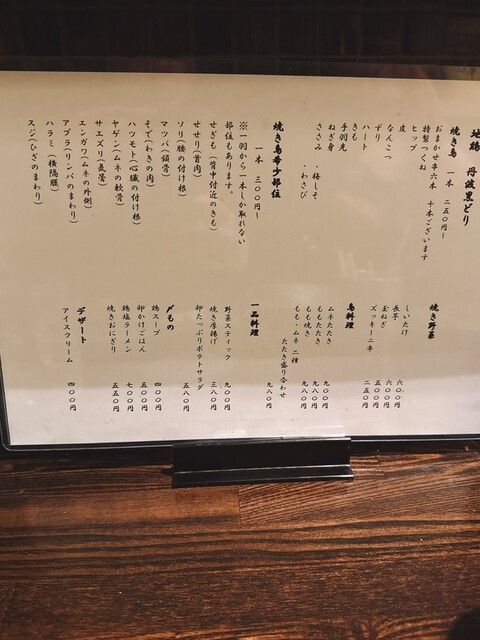 地鶏　丹波黒どり
焼き鳥　一本　二五〇円～
おまかせ串六本　十本ございます
特製つくね
ヒップ
皮
なんこつ
ずり
ハート
きも
手羽元
ねぎ身
ささみ　・梅しそ
・わさび
焼き鳥希少部位
一本　三〇〇円～
※一羽から一本しか取れない
部位もあります。
せぎも（背中付近のきも）
せせり（首肉）
ソリ（腰の付け根）
マツバ（鎖骨）
そで（わきの肉）
ハツモト（心臓の付け根）
ヤゲン（ムネの軟骨）
サエズリ（気管）
エンガワ（ムネの外側）
アブラ（リンパのまわり）
ハラミ（横隔膜）
スジ（ひざのまわり）
焼き野菜
しいたけ　六〇〇円
長芋　六〇〇円
玉ねぎ　五〇〇円
ズッキーニ串　二五〇円
鳥料理
ムネたたき　九〇〇円
ももたたき　九八〇円
もも焼き　九八〇円
もも・ムネ　二種
たたき盛り合わせ
九八〇円
一品料理
野菜スティック　九〇〇円
焼き厚揚げ　三八〇円
卵たっぷりポテトサラダ
五八〇円
〆もの
鶏スープ　四〇〇円
卵かけごはん　五〇〇円
鶏塩ラーメン　七〇〇円
焼きおにぎり　五五〇円
デザート
アイスクリーム　四〇〇円